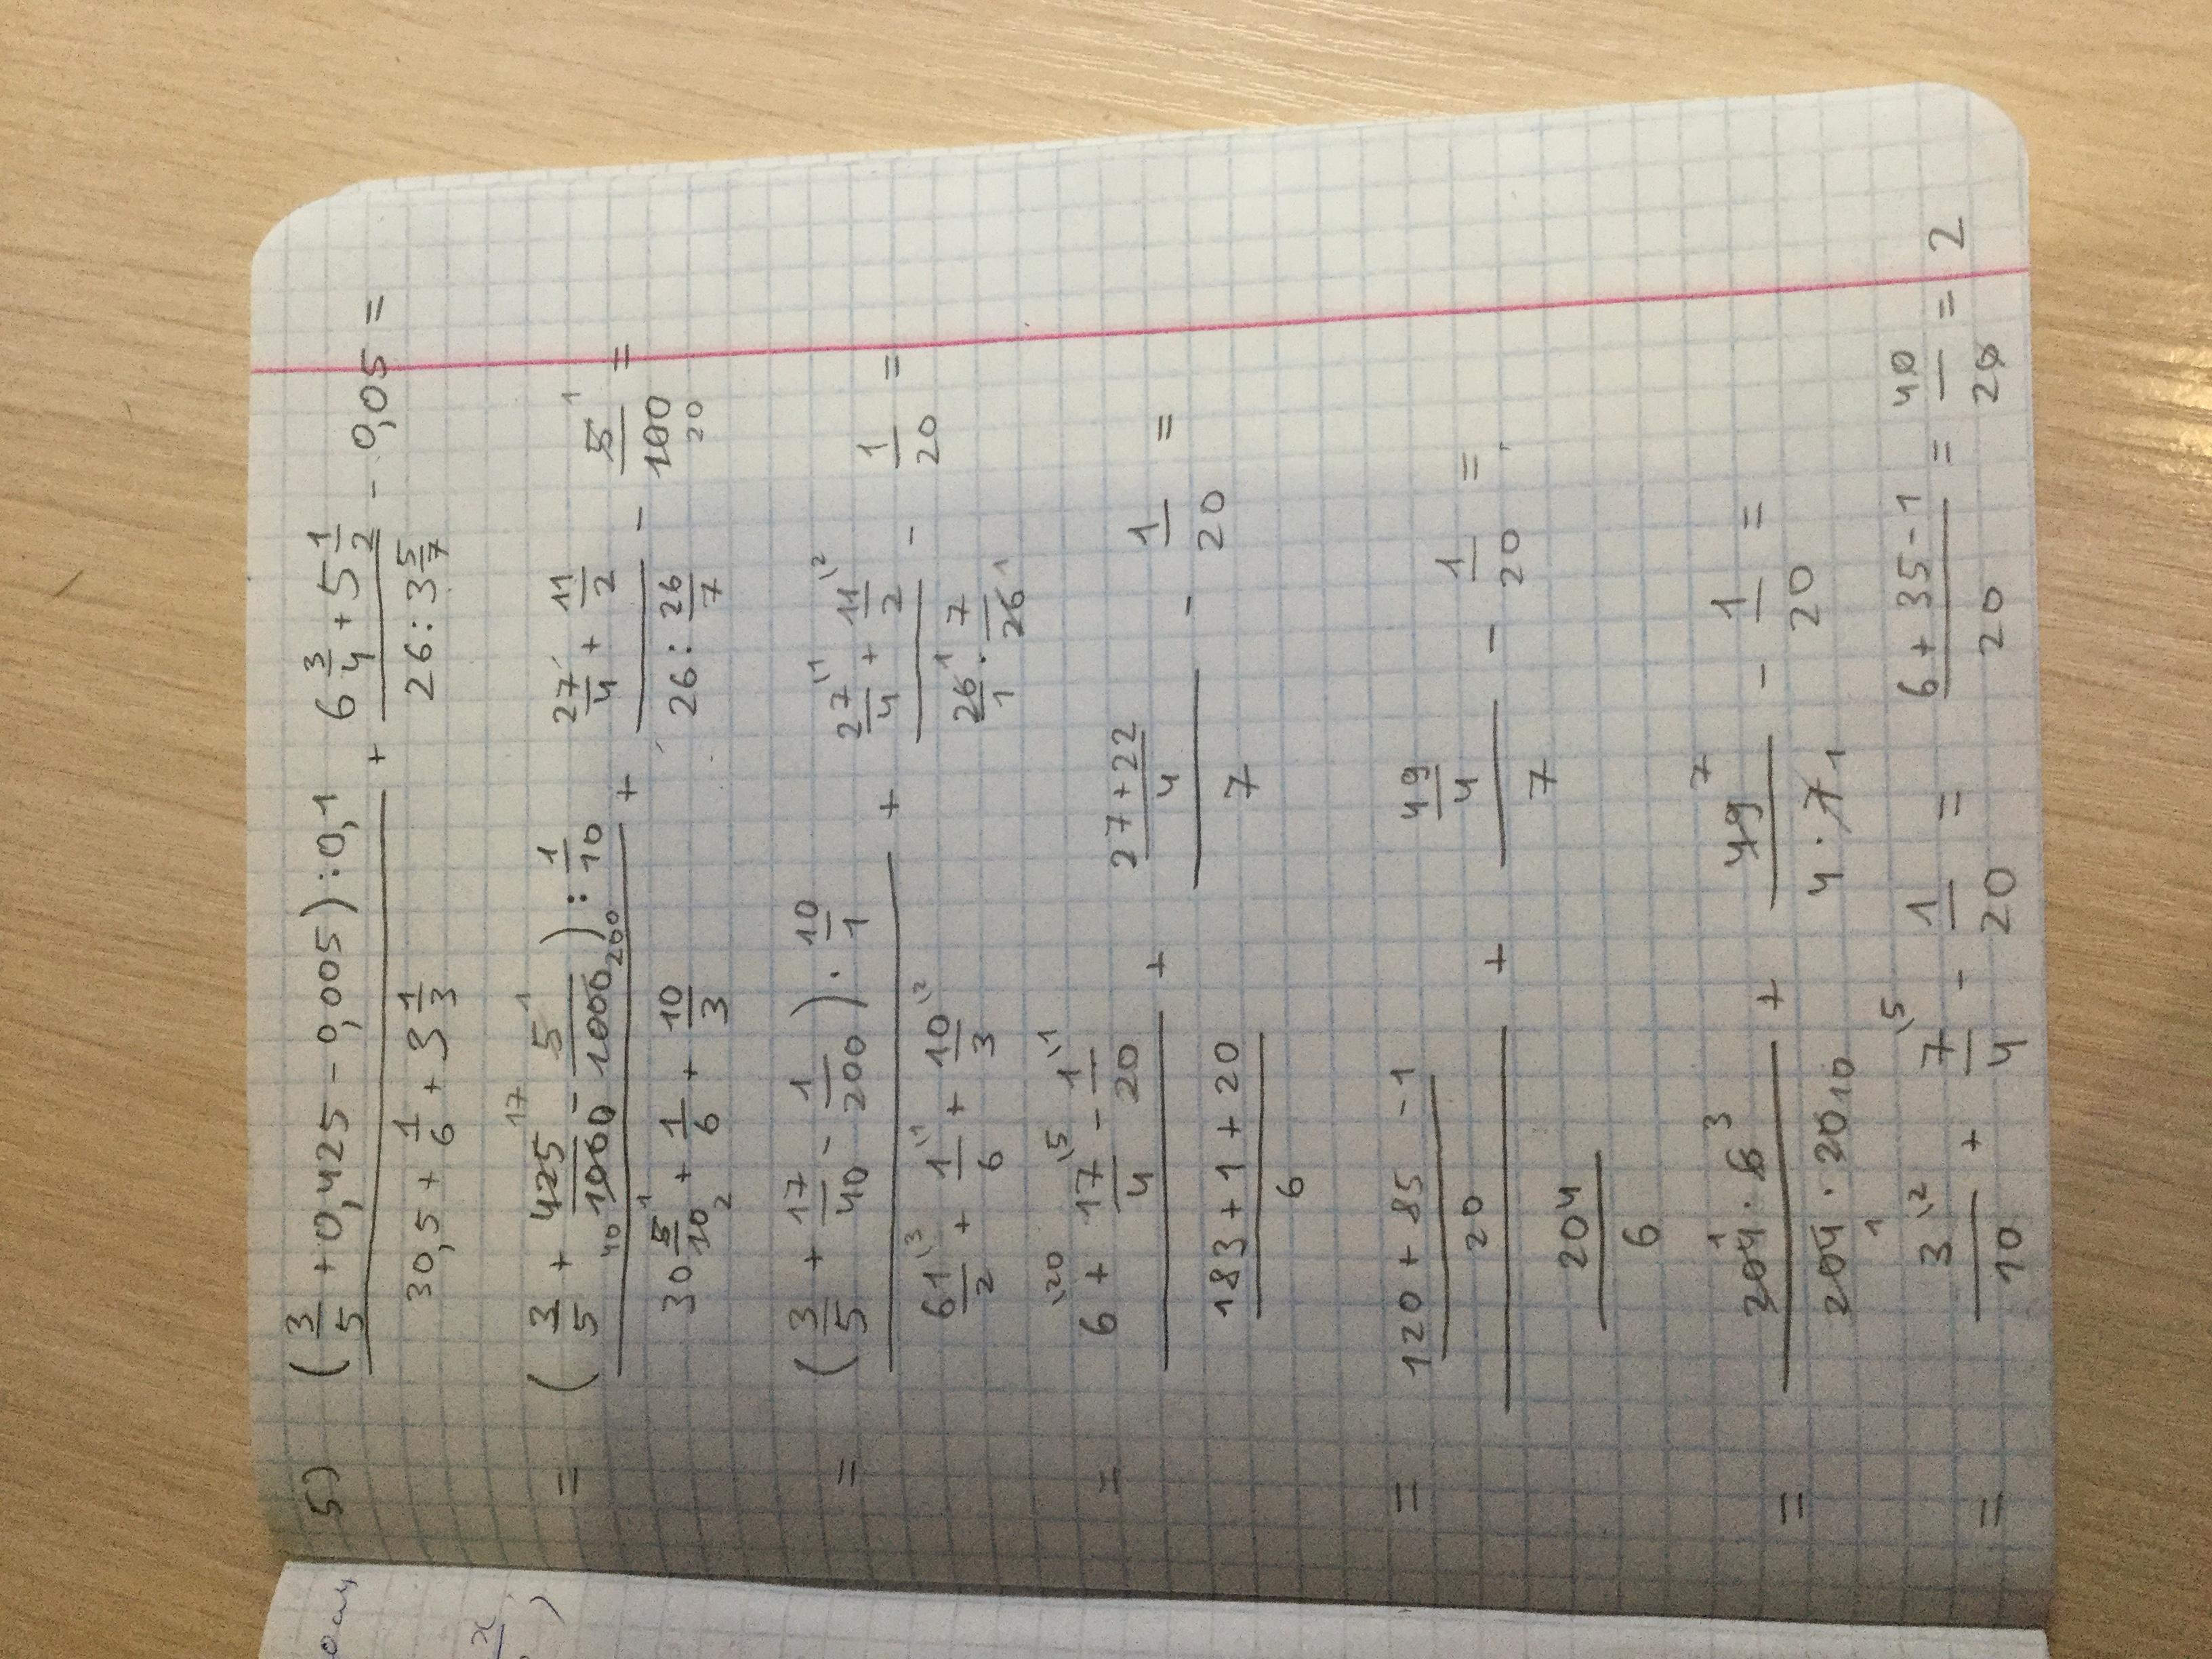 5) (3/5 + 0,425 - 0,005) : 0,1 / 30,5 + 1/6 + 3 1/3 + 6 3/4 + 5 1/2 / 26 : 3 5/7 - 0,05 =
= (3/5 + 425 17/1000 40 - 5 1/1000 200) : 1/10 / 30 5 1/10 2 + 1/6 + 10/3 + 27/4 + 11/2 / 26 : 26/7 - 5 1/100 20 =
= (3/5 + 17/40 - 1/200) · 10/1 / 61\3/2 + 1\1/6 + 10\2/3 + 27\1/4 + 11\2/2 / 26 1/1 · 7/26 1 - 1/20 =
= 6\20 + 17\5/4 - 1\1/20 / 183 + 1 + 20/6 + 27 + 22/4 / 7 - 1/20 =
= 120 + 85 - 1/20 / 204/6 + 49/4 / 7 - 1/20 =
= 204 1 · 6 3 / 204 1 · 20 10 + 49 7 / 4 · 7 1 - 1/20 =
= 3\2/10 + 7\5/4 - 1/20 = 6 + 35 - 1/20 = 40/20 = 2
x
)